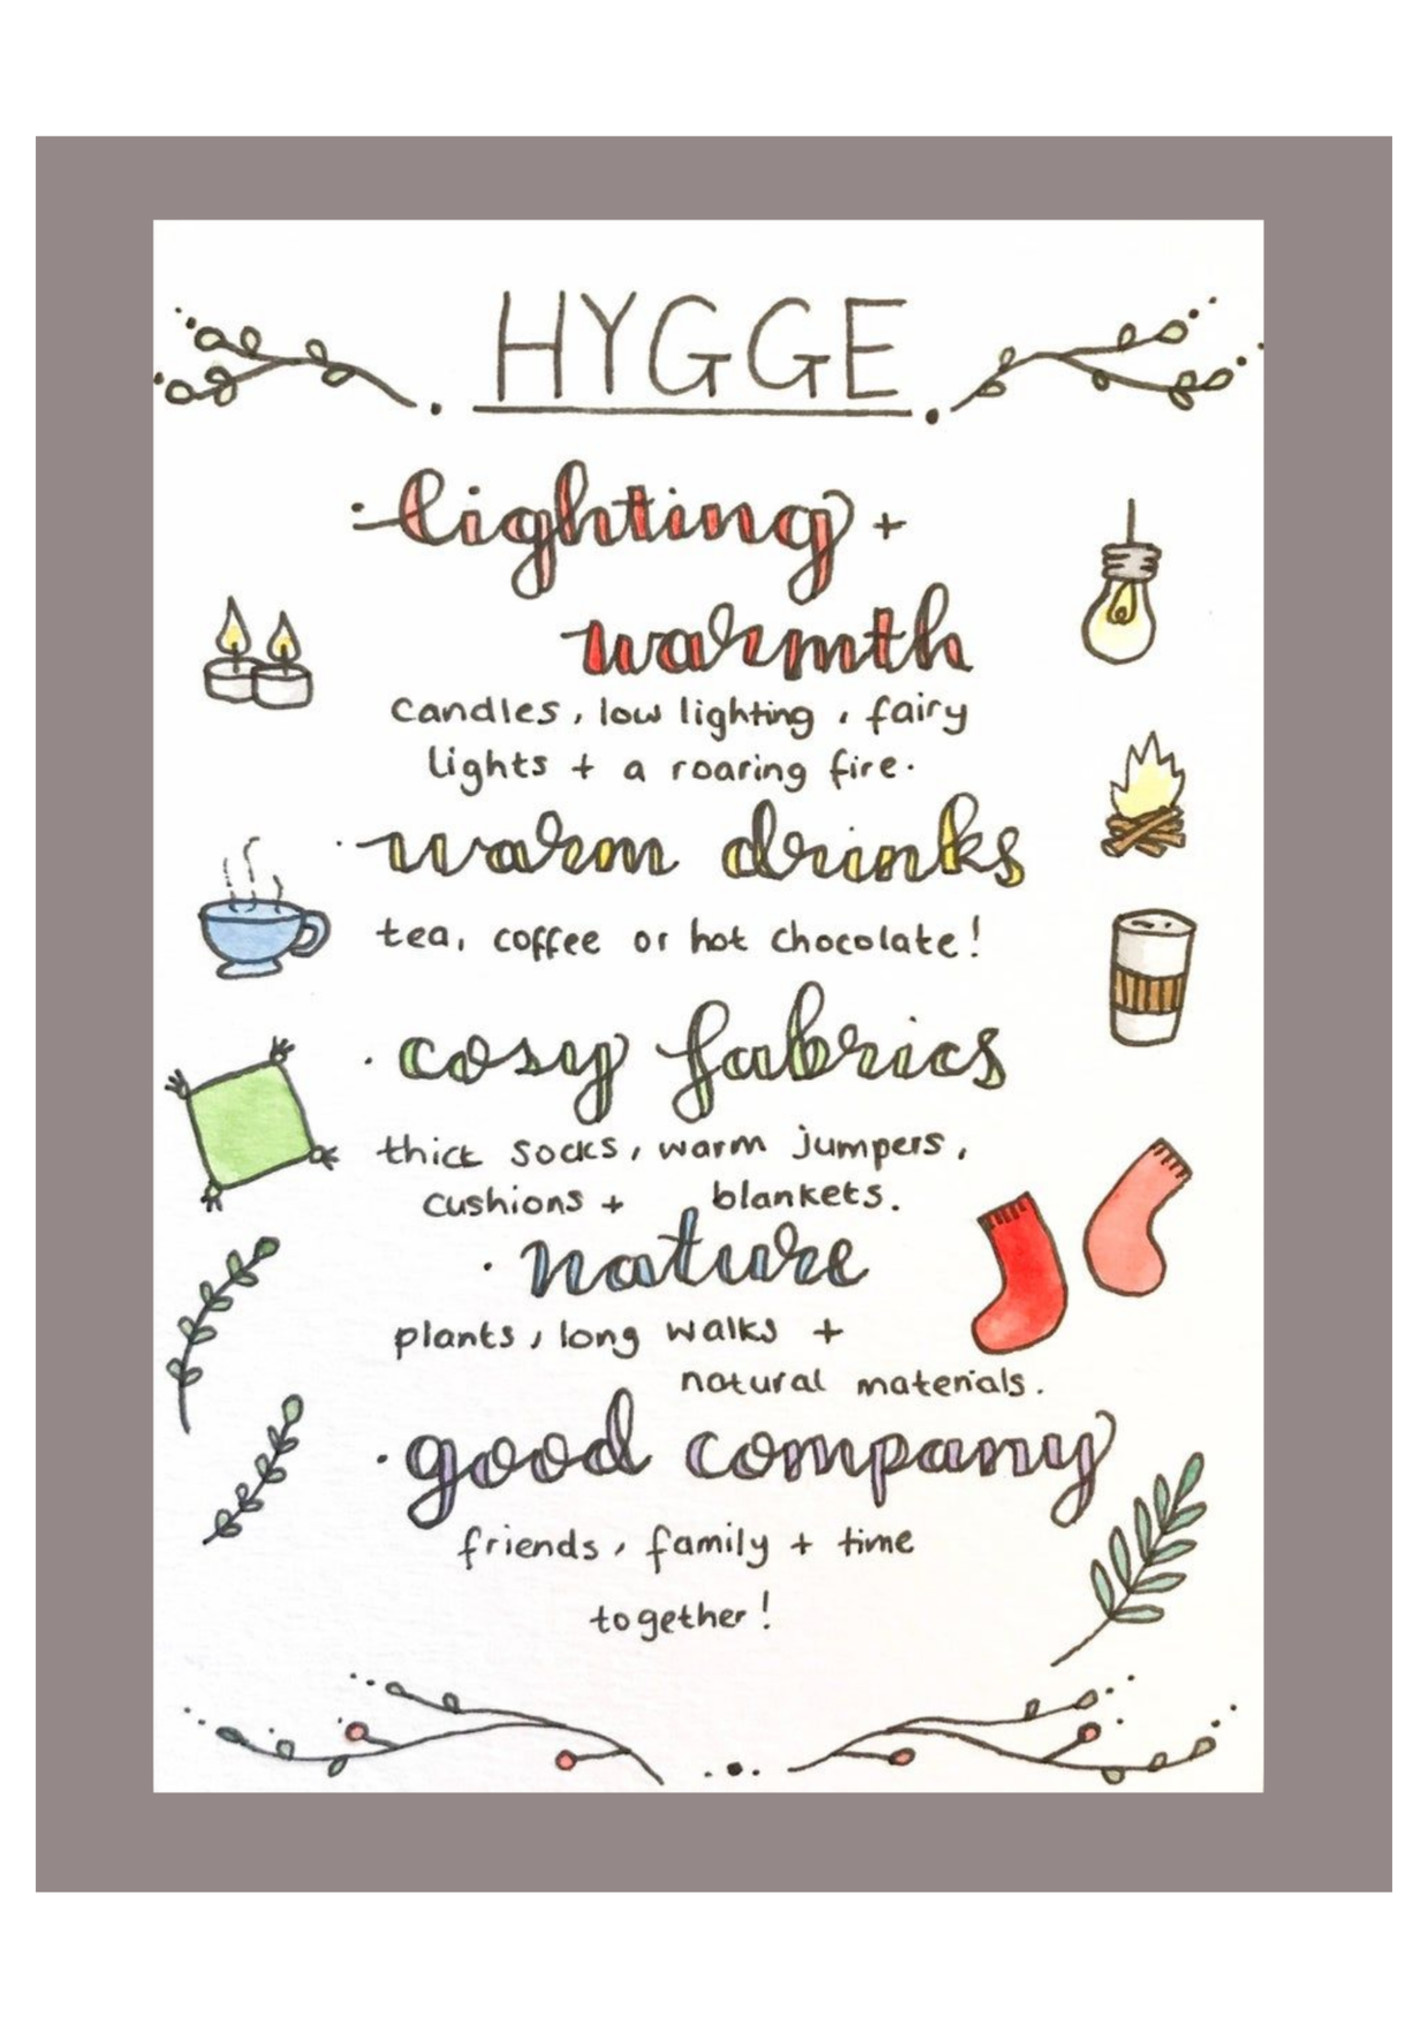 HYGGE
· lighting +
warmth
candles, low lighting, fairy
lights + a roaring fire.
· warm drinks
tea, coffee or hot chocolate!
· cosy fabrics
thick socks, warm jumpers,
cushions + blankets.
· nature
plants, long walks +
natural materials.
· good company
friends, family + time
together!